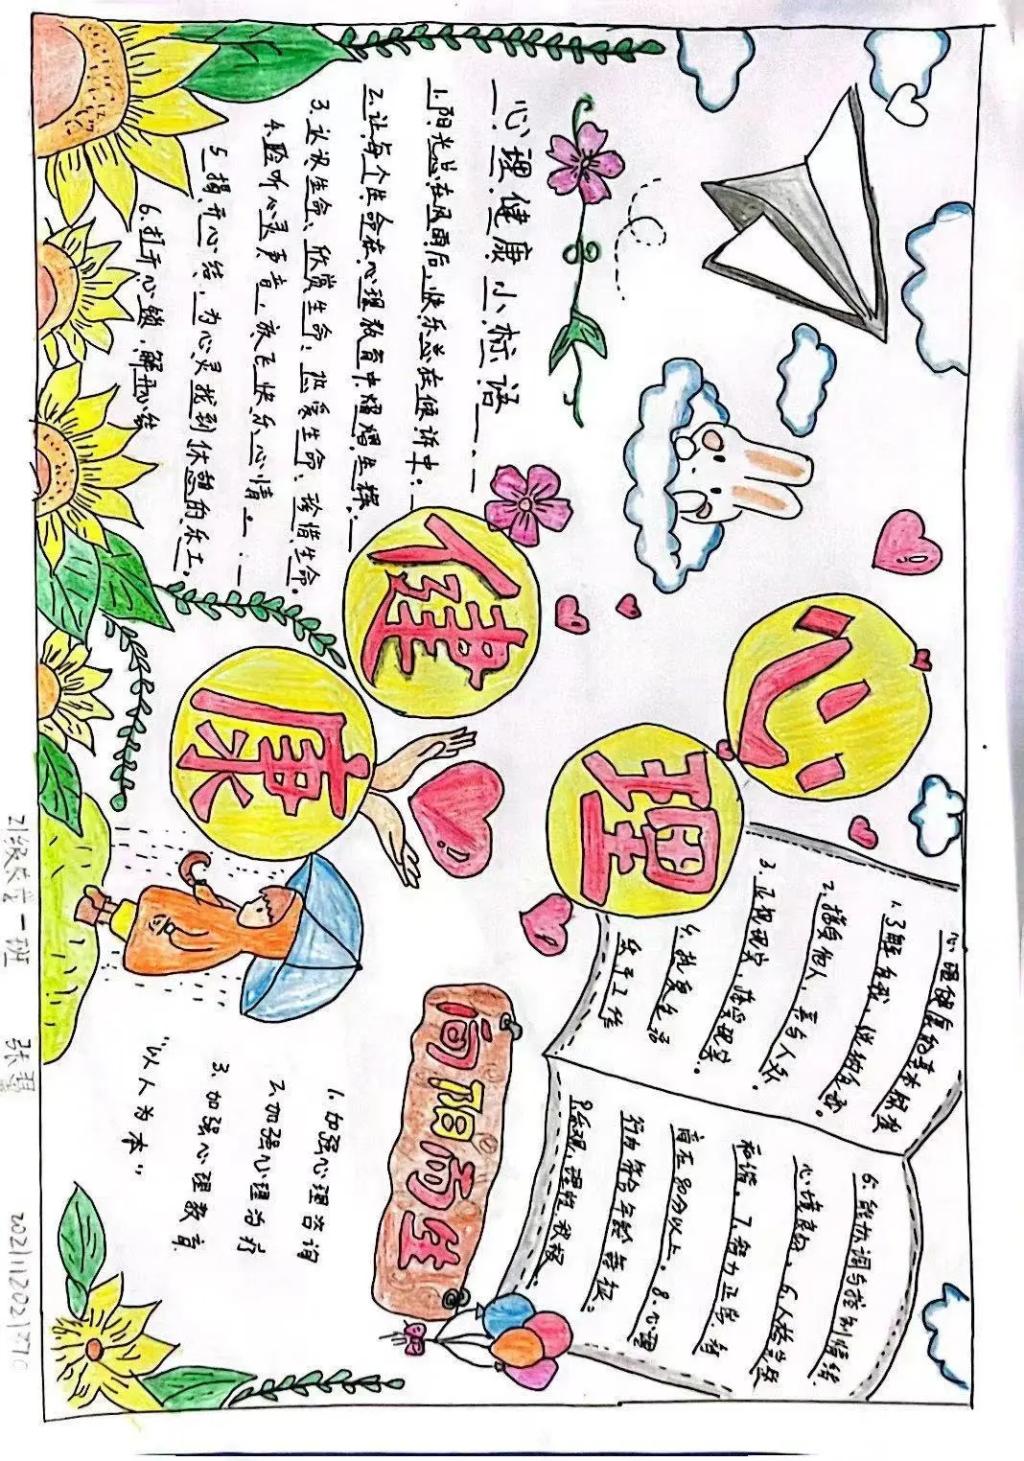 心理健康
心理健康小标语
1.阳光总在风雨后,快乐总在倾诉中。
2.让每个生命在心理教育中熠熠生辉。
3.认识生命、欣赏生命、热爱生命、珍惜生命。
4.聆听心灵声音,放飞快乐心情。
5.揭开心结,为心灵找到休憩的乐工。
6.打开心锁,解开心结
心理健康的基本标准
1.了解自我,悦纳自我。
2.接受他人,善与人处
3.正视现实,接受现实。
4.热爱生活
乐于工作
6.能协调与控制情绪
心境良好。6.人格完整
和谐。7.智力正常,智
商在80分以上。8.心理
行为符合年龄特征。
向阳而生
1.加强心理咨询
2.加强心理治疗
3.加强心理教育
"以人为本"
21级 一班